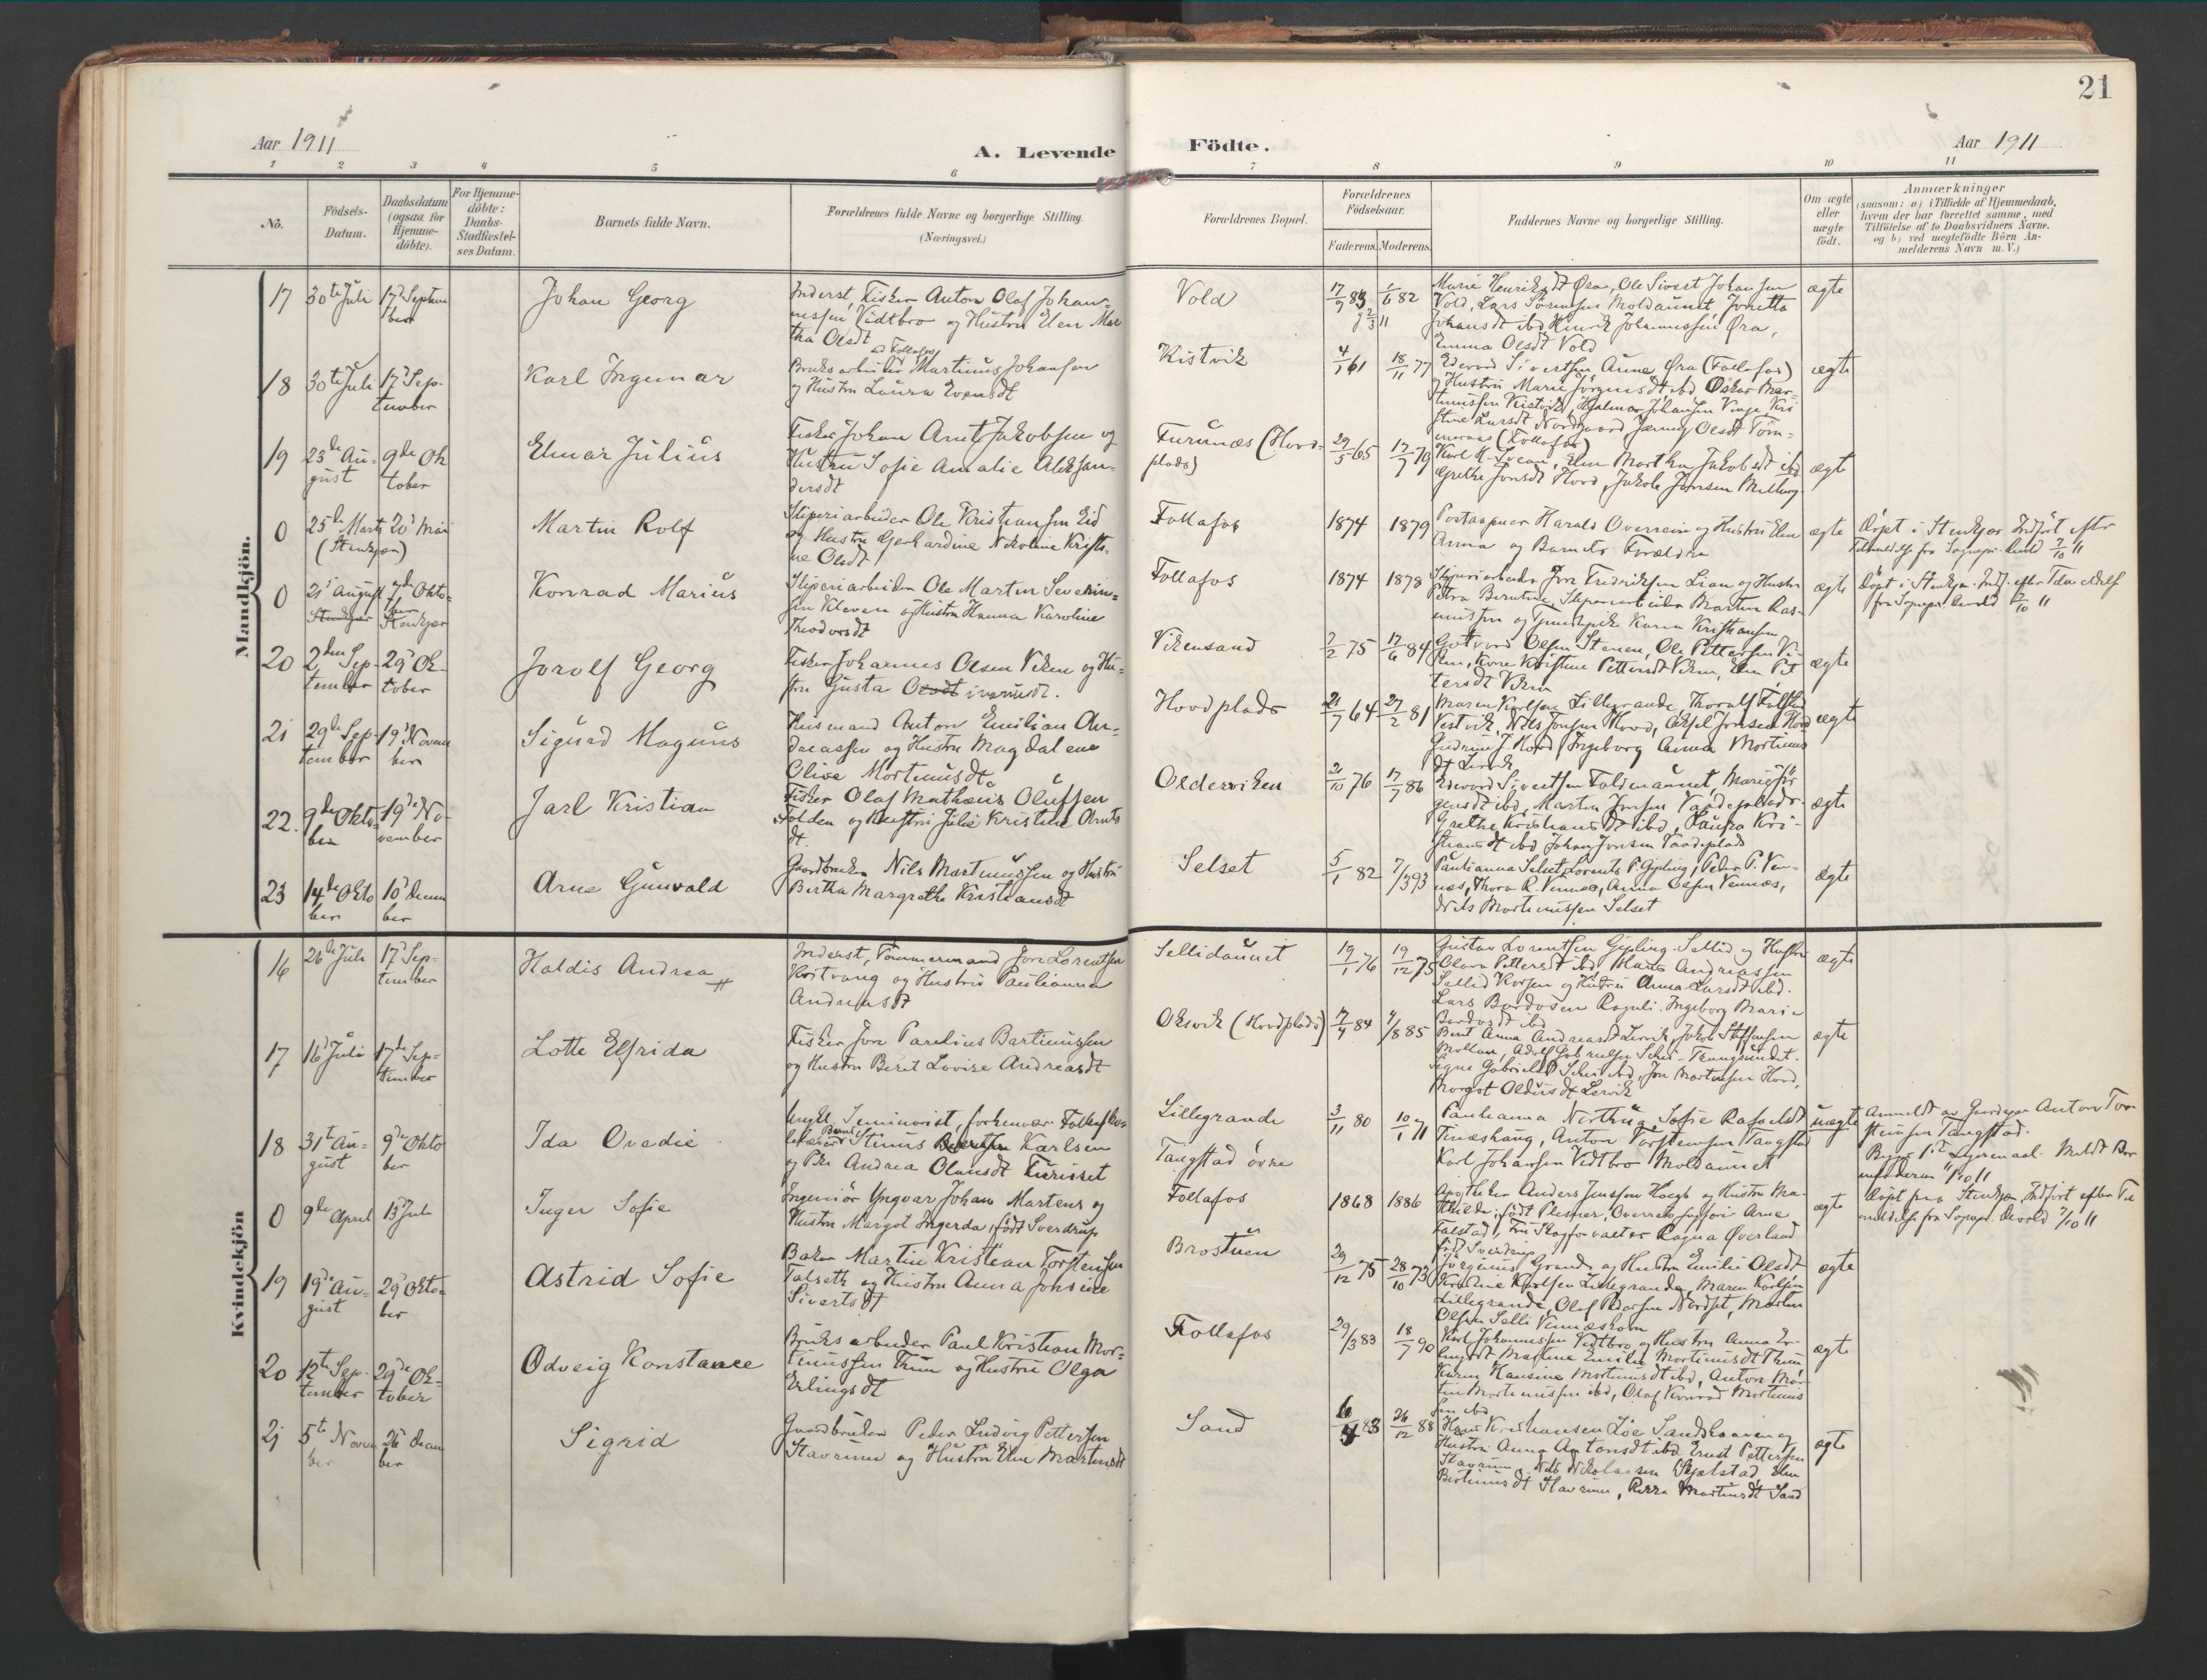 21
Aar 1911
A. Levende Födte.
Aar 1911
1 2 3 4 5 6 7 8 9 10 11
No.
Födsels-Datum.
Daabsdatum (ogsaa for Hjemme-döbte).
For Hjemme-döbte: Daabs-Stadfæstel-ses Datum.
Barnets fulde Navn.
Forældrenes fulde Navne og borgerlige Stilling. (Næringsvei.)
Forældrenes Bopæl.
Forældrenes Födselsaar.
Faderens. Moderens.
Faddernes Navne og borgerlige Stilling.
Om ægte eller uægte födt.
Anmærkninger
(saasom: a) i Tilfælde af Hjemmedaab,
hvem der har forrettet samme, med
Tilföielse af to Daabsvidners Navne.
og b) ved uægtefödte Börn An-
melderens Navn m. V.)
Mandkjön.
17 30te Juli 17d Septem
ber
Johan Georg
Inderst, Fisker Anton Olaf Johan-
nessen Vidtbro og Hustru Elen Mar
tha Olsdt
Vold
17/9 83 1/6 82
Marie Henriksdt Øra, Ole Sivert Johansen
Vold, Lars Sørensen Moldaunet
Johansdt ibd Henrik Johannessen Øra,
Emma Olsdt Vold
ægte
18 30te Juli 17d Sep-
tember
Karl Ingemar
Bruksarbeider ved Follafos Martinus Johansen
og Hustru Laura Evensdt
Kistvik
4/1 61 18/11 77
Edevard Sivertsen, Anne Øra (Follafos)
og Hustru Marie Jørgensdt ibd Oskar Mar-
tinussen Kistvik, Hjalmar Johansen Vinje, Kri
stine Larsdt Nordgaard Jenny Olsdt
(Follafos)
ægte
19 23de Au-
gust 9de Ok
tober
Elmar Julius
Fisker Johan Arnt Jakobsen og
Hustru Sofie Amalie Aleksan-
dersdt
Furunæs (Hovd-
plads)
29/5 65 17/7 79
Karl K. Svean, Elen Martha Jakobsdt ibd
Grethe Jonsdt Hovd, Jakob Jonsen
ægte
0 25de Marts 20d Mai
(Stenkjær)
Martin Rolf
Sliperiarbeider Ole Kristiansen Eid
og Hustru Gerhardine Nikoline Kristi-
ne Olsdt
Follafos
1874 1879
Postaapner Harald Overrein og Hustru Elen
Anna og Barnets Forældre
ægte
Døpt i Stenkjær Indført efter
Tilmeldelse fra Sognepr. Devold 7/10 11
0 21d August 7de Okto-
ber
Stenkjær
Konrad Marius
Sliperiarbeider Ole Martin Severin-
sen Kleven og Hustru Hanna Karoline
Theodorsdt
Follafos
1874 1878
Sliperiarbeider Jon Fredriksen Lian og Hustru
Petra Berntine, Sliperiarbeider Martin Ras-
mussen og Tjenestepike Karen Kristiansen
ægte
Døpt i Stenkjær. Indf. efter Tilmeldelse
fra Sognepr. Devold 7/10 11
20 2den Sep-
tember 29d Ok-
tober
Jorolf Georg
Fisker Johannes Olsen Viken og Hu-
stru Gusta Olsdt iversdt.
Vikensand
7/2 75 17/6 84
Gotvard Olsen Stenen, Ole Pettersen Vi-
ken, Kristine Pettersdt Viken, Elen Pet
tersdt Viken
ægte
21 29de Sep-
tember 19d Novem
ber
Sigurd Magnus
Husmand Anton Emilian An-
dreassen og Hustru Magdalene
Olive Mortinusdt
Hovdplads
21/7 64 27/2 81
Maren Karlsen Lillegrande, Thoralf Følstad
Kistvik, Nils Jonsen Hovd, Aksel Jonsen Hovd
Gudrun J. Hovd, Ingeborg Anna Mortinus
dt Lervik
ægte
22. 9de Okto-
ber 19de No-
vember
Jarl Kristian
Fisker Olaf Mathæus Olufsen
Folden og Hustru Julie Kristine Arnts
dt.
Olderviken
21/10 76 17/7 86
Edevard Sivertsen Foldenaunet, Marie Jör
gensdt ibd, Martin Jonsen Vaadeplads
Grethe Kristiansdt ibd, Laura Kri-
stiansdt ibd Johan Jonsen Vaadeplads
ægte
23 14de Okto
ber 10d Decem
ber
Arne Gunvald
Gaardbruker Nils Martinussen og Hustru
Bertha Margrethe Kristiansdt
Selset
5/1 82 7/3 93
Paulianna Selset, Lorents P. Gipling, Peder P. Ven-
næs, Thora R. Vennæs, Anna Olsen Vennæs,
Nils Martinussen Selset
ægte
Kvindekjön
16 26de Juli 17d Sep-
tember
Haldis Andrea
Inderst, Tømmermand Jon Lorentsen
Hortvang og Hustru Paulianna
Andreasdt
Sellidaunet
19/1 76 19/12 75
Gustav Lorentsen Gipling. Sellid og Hustru
Olava Pettersdt ibd Hans Andreassen
Sellid og Hustru Anna Larsdt ibd.
Lars Bardosen Ragnli. Ingeborg Marie
Bardosdt ibd
ægte
17 16d Juli 17de Sep-
tember
Lotte Elfrida
Fisker Jon Paulius Bartinussen
og Hustru Berit Lovise Andreasdt
Oksvik (Hovdplads)
17/4 84 4/8 85
Berit Anna Andreasdt Lervik, Jakob Steffensen
Moltun, Adolf Gabrielsen Schei-Trangsundet.
Signe Gabrielsdt Schei ibd, Jon Mortensen Hovd,
Margot Oldusdt Lervik
ægte
18 31te Au-
gust 9de Okto
ber
Ida Ovedie
Ungk. Seminarist, forhenvær. Folkesko-
lelærer Stinus Bernh. Karlsen
og Pike Andrea Olausdt Turisset
Lillegrande
Tangstad øvre
3/11 80 10/1 71
Paulianna Northug, Sofie Rafaelsdt
Tinæshaug, Anton Torstensen Tangstad
Karl Johansen Vidtbro Moldaunet
uægte
Anmeldt av Gaardeier Anton Tor
steinsen Tangstad.
Begges 1ste Leiermaal. Meldt Bar
nefaderen 11/10 11
0 9de April 13d Juli
Inger Sofie
Ingeniør Yngvar Johan Martens og
Hustru Margot Ingerda, født Sverdrup
Follafos
1868 1886
Apotheker Anders Jenssen Høegh og Hustru Ma-
thilde, født Plesner, Overretssagfører Arne
Falstad, Fru Skogforvalter Ragna Øverland
født Sverdrup
ægte
Døpt paa Stenkjær Indført efter Til
meldelse fra Sognepr. Devold 7/10 11
19 19de Au-
gust 29d Okto-
ber
Astrid Sofie
Baker Martin Kristian Torstensen
Falseth og Hustru Anna Jonsine
Sivertsdt
Brostuen
29/12 75 28/10 73
Jørginus Grande og Hustru Emilie Olsdt
Karoline Karlsen Lillegrande, Maren Karlsen
Lillegrande, Olaf Pedersen Nordset, Martin
Olsen Selli Vennæshavn
ægte
20 12te Sep-
tember 29de Ok-
tober
Odveig Konstance
Bruksarbeider Paul Kristian Mor-
tinussen Trum og Hustru Olga
Erlingsdt
Follafos
29/3 83 18/7 90
Karl Johannessen Vidtbro og Hustru Anna Er-
lingsdt Martine Emilie Mortinusdt Trum
Karen Hansine Mortinusdt ibd, Anton Mar-
tin Mortinussen ibd, Olaf Konrad Mortinus
sen ibd
ægte
21 5te Novem
ber 26 Decem
ber
Sigrid
Gaardbruker Peder Ludvig Pettersen
Stavrum og Hustru Elen Martinsdt
Sand
6/4 83 26/12 88
Hans Kristiansen Løe Sandshaven og
Hustru Anna Antonsdt ibd. Ernst Pettersen
Stavrum, Nils Nikolaisen Skjelstad, Elen
Bertinusdt Stavrum, Petra Martinsdt Sand
ægte